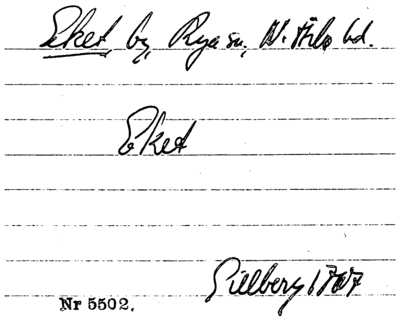 Eket, by, Rya sn, N. Åsbo hd.
Eket
Gillberg 1767
Nr 5502.